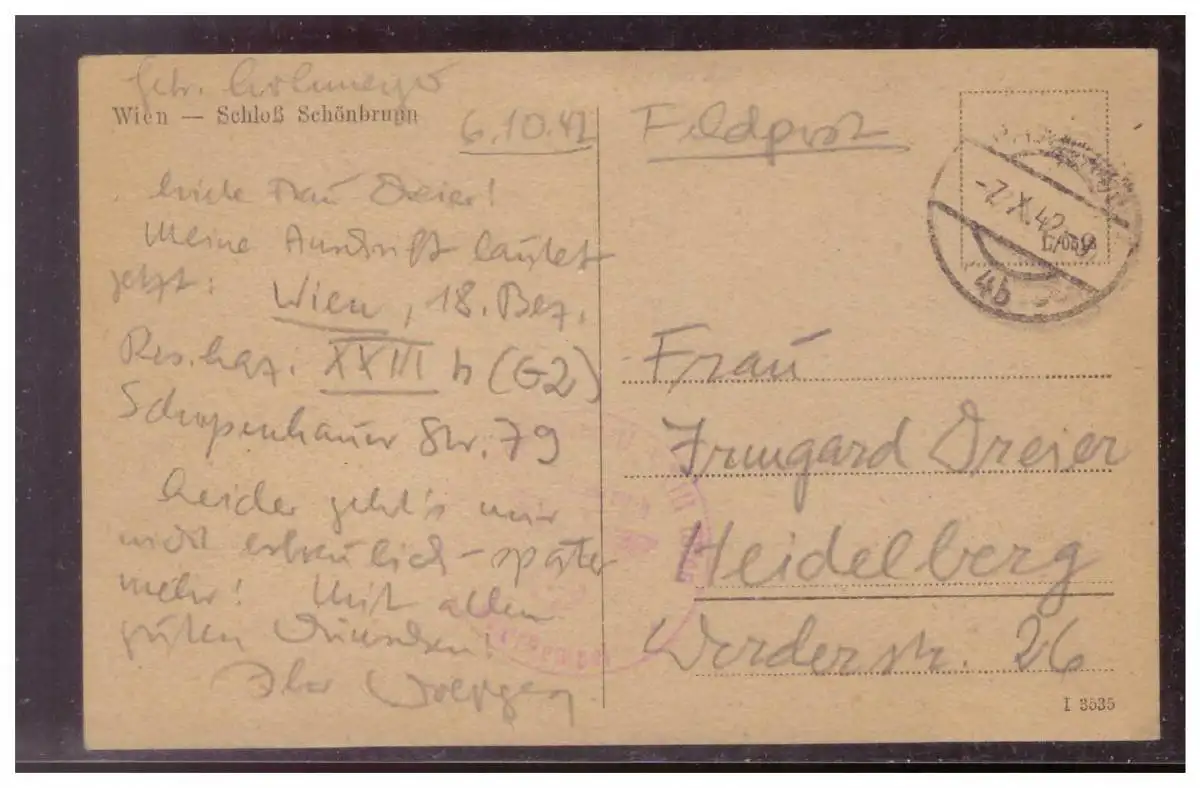 Wien — Schloß Schönbrunn
6.10.42
Frau Dreier!
Meine Anschrift lautet
jetzt: Wien, 18. Bez.
Res. Laz. XXIII b (G2)
Schopenhauer Str. 79
Leider geht's mir
nicht erfreulich - später
mehr! Mit allen
guten Wünschen!
Ihr
Feldpost
-7.X.42-9
4b
L/0513
Frau
Irmgard Dreier
Heidelberg
Werderstr. 26
I 3535